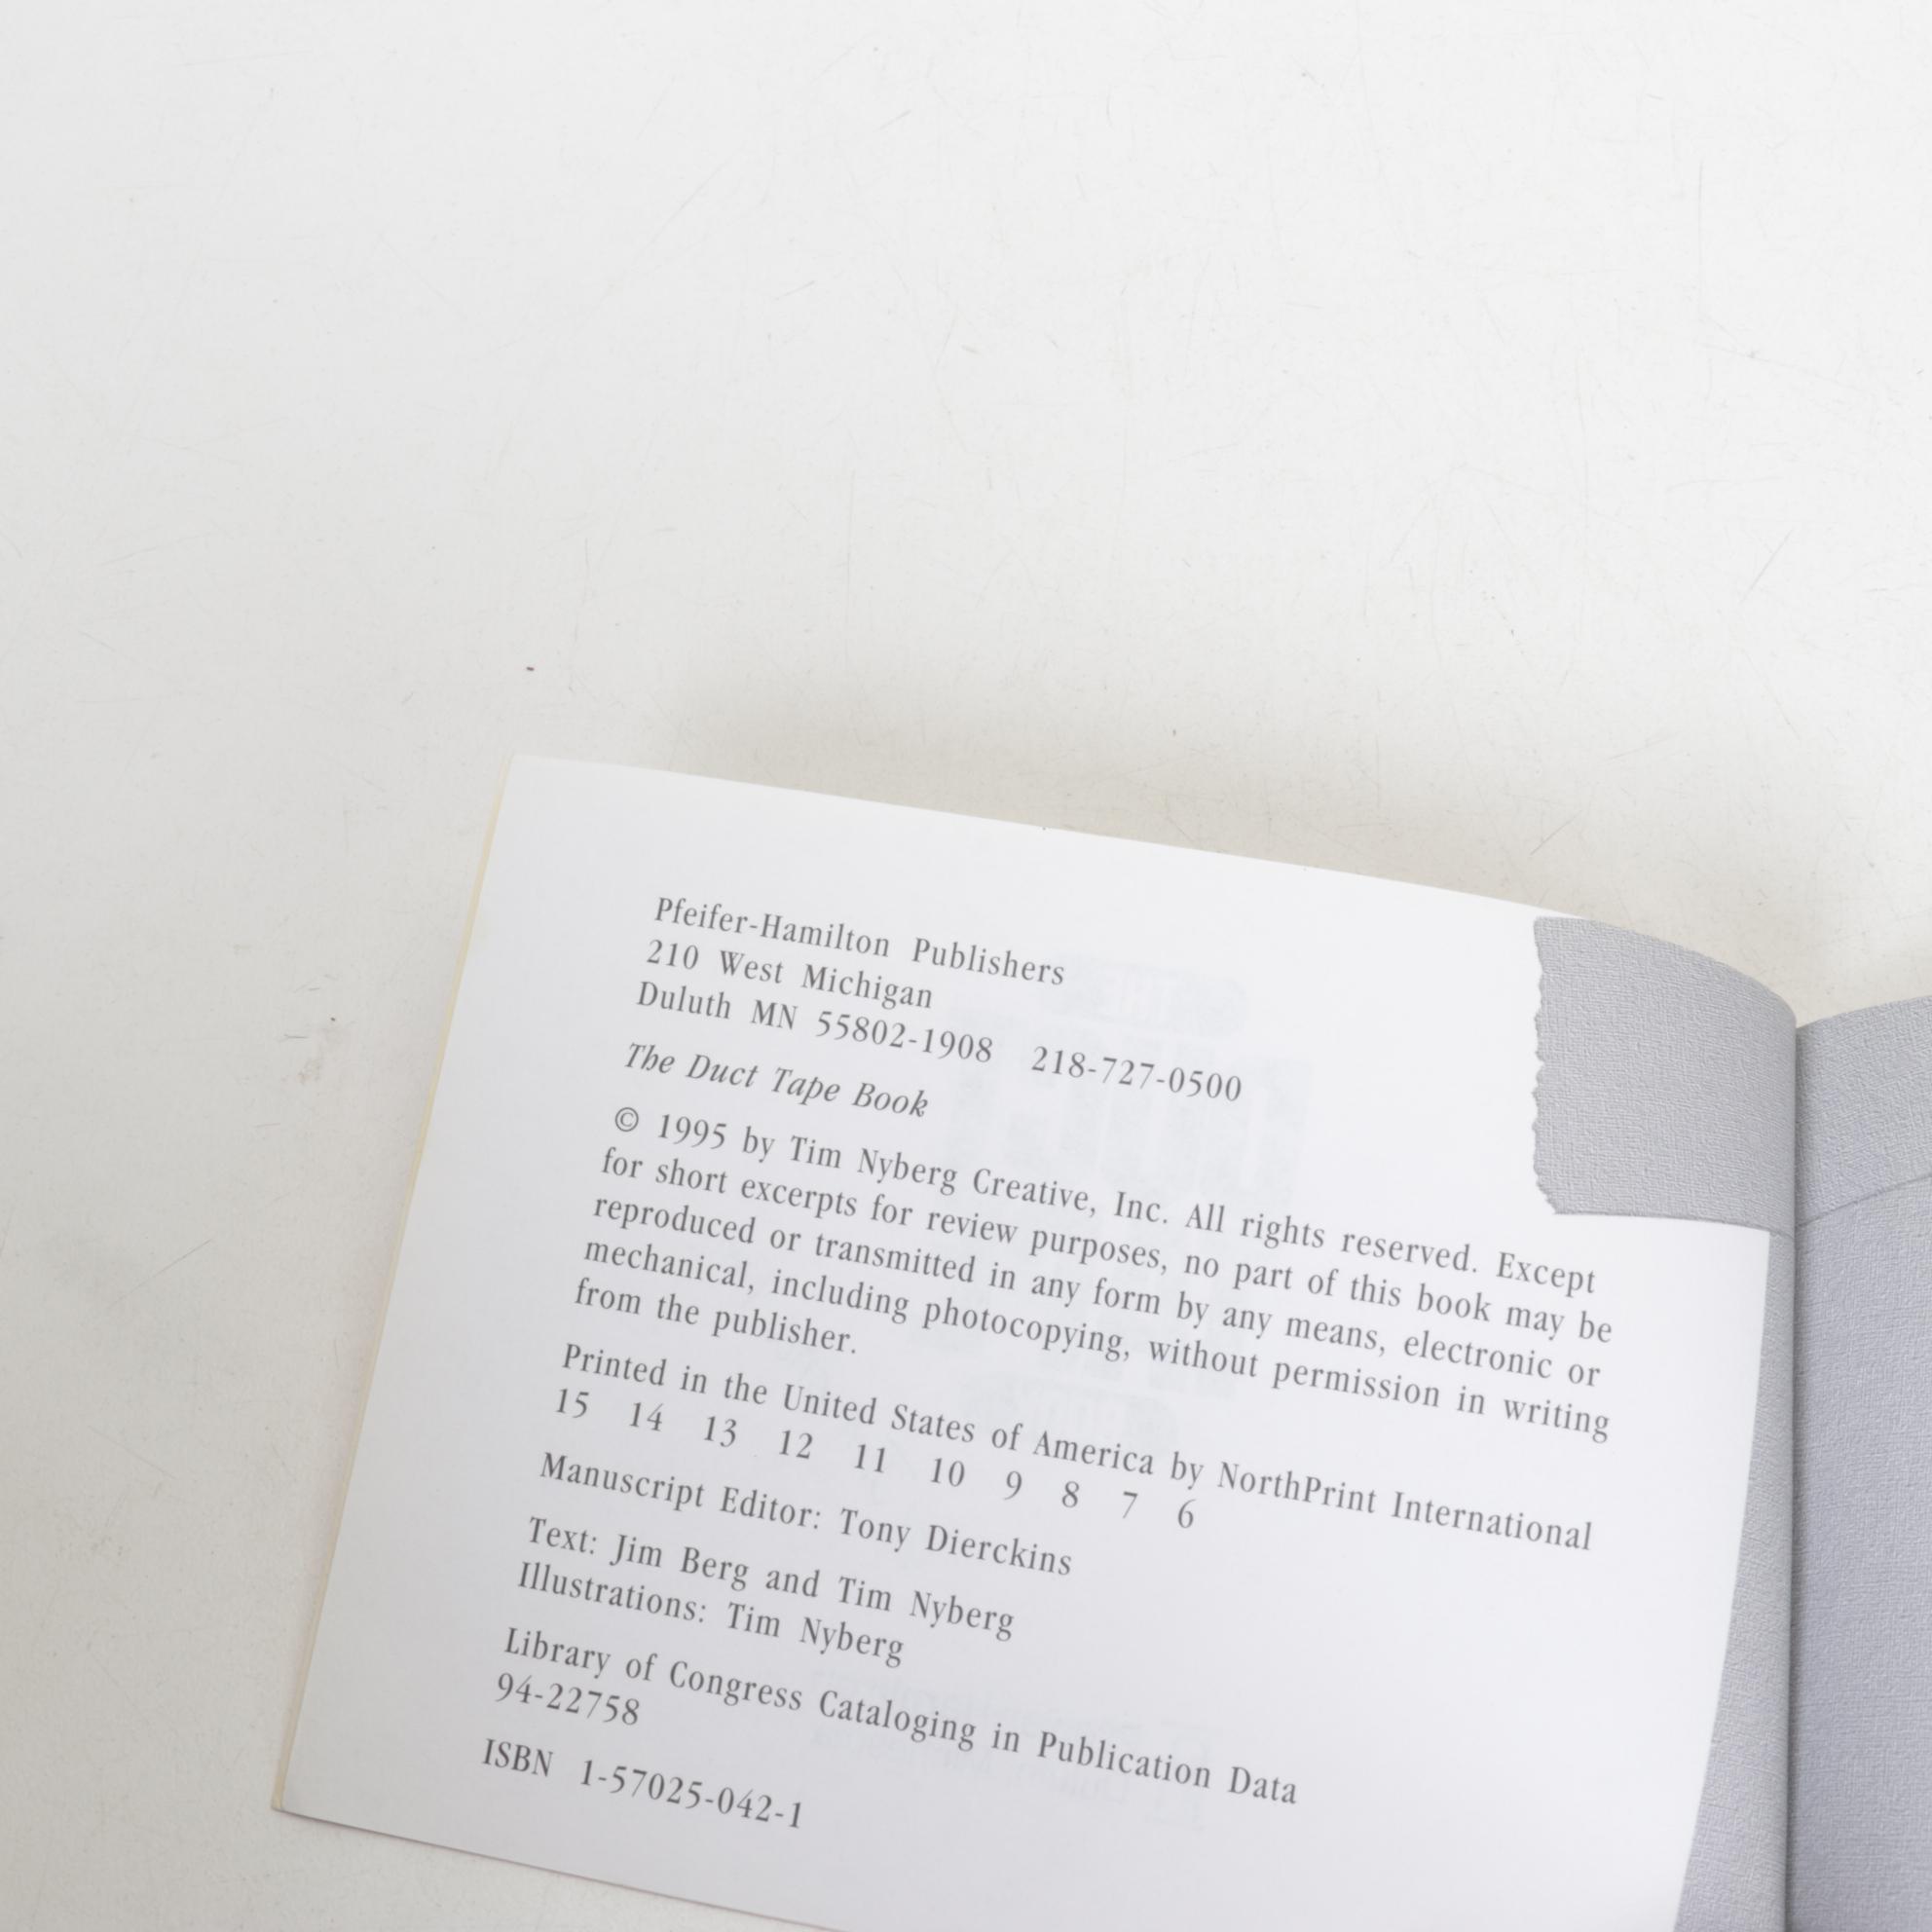 Pfeifer-Hamilton Publishers
210 West Michigan
Duluth MN 55802-1908 218-727-0500
The Duct Tape Book
© 1995 by Tim Nyberg Creative, Inc. All rights reserved. Except
for short excerpts for review purposes, no part of this book may be
reproduced or transmitted in any form by any means, electronic or
mechanical, including photocopying, without permission in writing
from the publisher.
Printed in the United States of America by NorthPrint International
15 14 13 12 11 10 9 8 7 6
Manuscript Editor: Tony Dierckins
Text: Jim Berg and Tim Nyberg
Illustrations: Tim Nyberg
Library of Congress Cataloging in Publication Data
94-22758
ISBN 1-57025-042-1